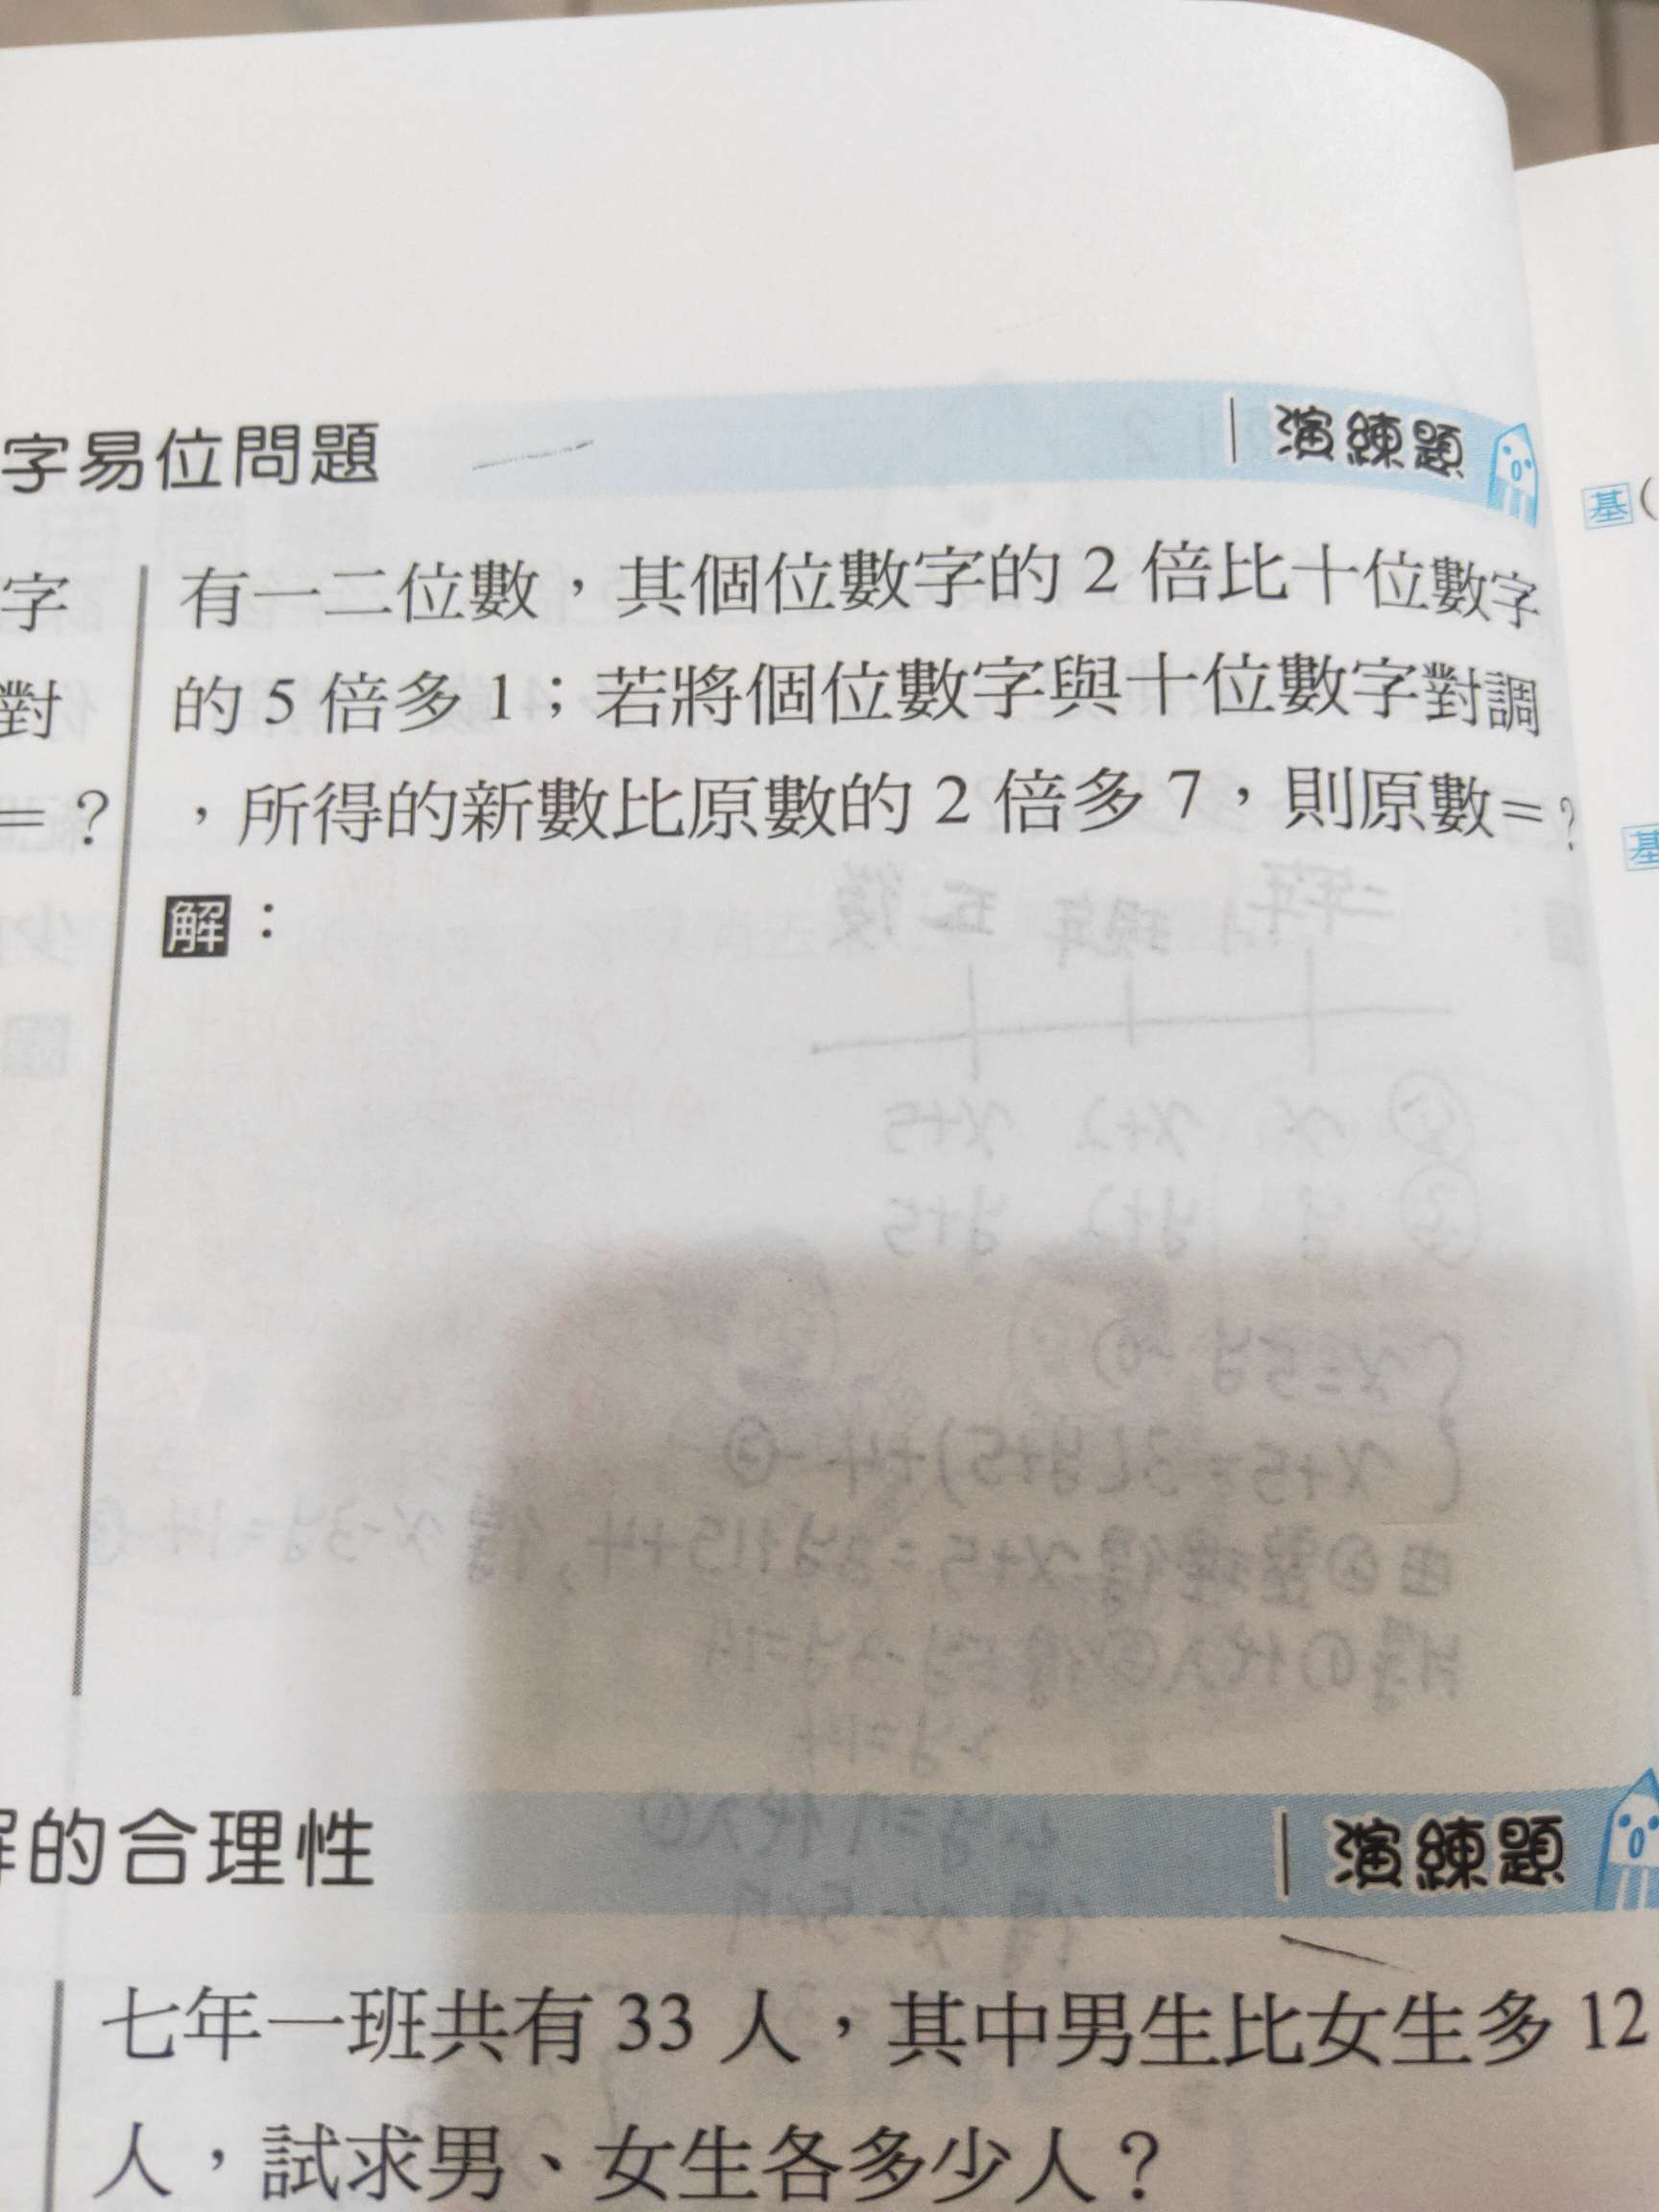 字易位問題 演練題
基(
字 有一二位數，其個位數字的 2 倍比十位數字
對 的 5 倍多 1；若將個位數字與十位數字對調
=？ ，所得的新數比原數的 2 倍多 7，則原數=？
基
解：
解的合理性 演練題
七年一班共有 33 人，其中男生比女生多 12
人，試求男、女生各多少人？